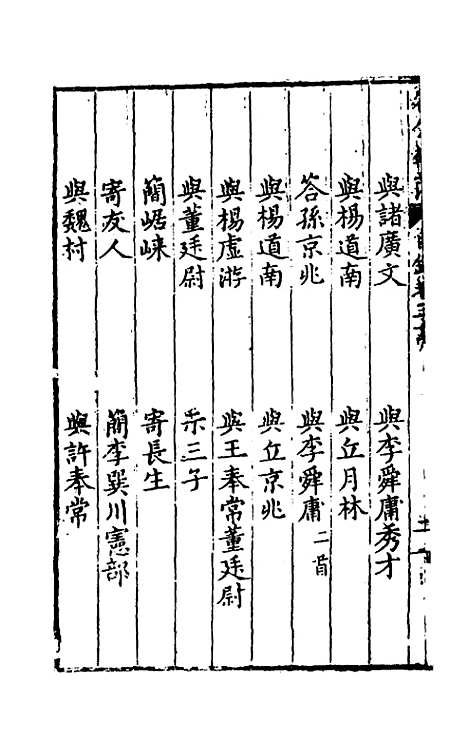 與諸廣文 與李舜庸秀才
與楊道南 與丘月林
答孫京兆 與李舜庸二首
與楊道南 與丘京兆
與楊虛游 與王奉常董廷尉
與董廷尉 示三子
簡崌崍 寄長生
寄友人 簡李巽川憲部
與魏村 與許奉常